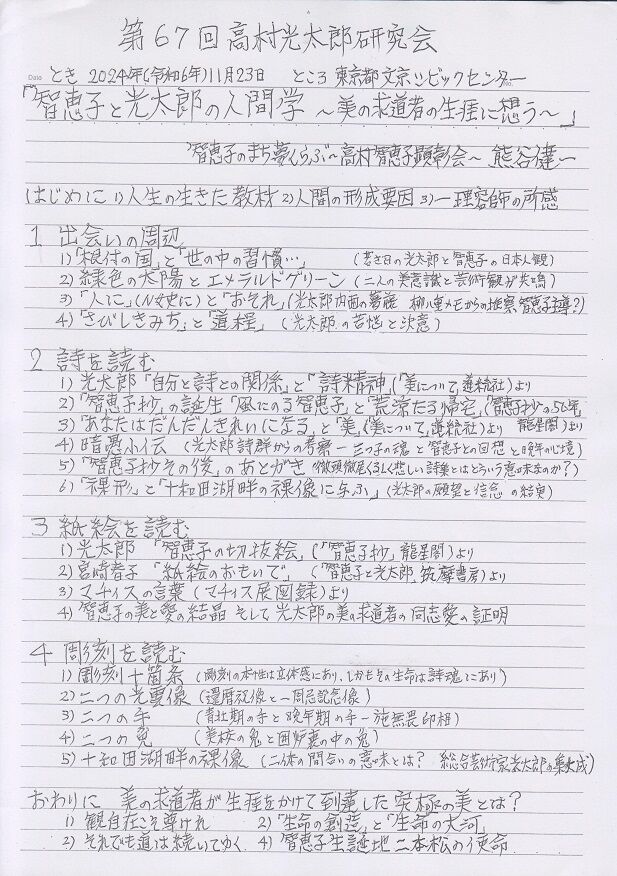 第67回高村光太郎研究会
Date とき 2024年(令和6年)11月23日 ところ 東京都文京シビックセンター
「智恵子と光太郎の人間学 ～美の求道者の生涯に想う～」
智恵子のまち夢くらぶ～高村智恵子顕彰会～ 熊谷健一
はじめに 1)人生の生きた教材 2)人間の形成要因 3)一理容師の所感
1 出会いの周辺
1)「根付の国」と「世の中の習慣…」 (若き日の光太郎と智恵子の日本人観)
2) 緑色の太陽とエメラルドグリーン (二人の美意識と芸術観が共鳴)
3)「人に」(N女史に)と「おそれ」(光太郎内面の葛藤 柳八重メモからの推察 智恵子主導?)
4)「さびしきみち」と「道程」 (光太郎の苦悩と決意)
2 詩を読む
1) 光太郎「自分と詩との関係」と「詩精神」(「美について」道統社)より
2)「智恵子抄」の誕生「風にのる智恵子」と「荒涼たる帰宅」(「智恵子抄」の56年 龍星閣)より
3)「あなたはだんだんきれいになる」と「美」(「美について」道統社)より
4) 暗愚小伝 (光太郎詩群からの考察－三つ子の魂と智恵子との回想と晩年の心境)
5)「智恵子抄その後」のあとがき (徹頭徹尾くるしく悲しい詩集とはどういう意味なのか?)
6)「裸形」と「十和田湖畔の裸像に与ふ」(光太郎の願望と信念の結実)
3 紙絵を読む
1) 光太郎 「智恵子の切抜絵」(「智恵子抄」龍星閣)より
2) 宮崎春子 「紙絵のおもいで」 (「智恵子と光太郎」筑摩書房)より
3) マチィスの言葉 (マチィス展図録)より
4) 智恵子の美と愛の結晶 そして光太郎の美の求道者の同志愛の証明
4 彫刻を読む
1) 彫刻十箇条 (彫刻の本性は立体感にあり、しかもその生命は詩魂にあり)
2) 二つの光雲像 (還暦祝像と一周忌記念像)
3) 二つの手 (青壮期の手と晩年期の手－施無畏印相)
4) 二つの兎 (美校の兎と囲炉裏の中の兎)
5) 十和田湖畔の裸像 (二体の間合いの意味とは? 総合芸術家光太郎の集大成)
おわりに 美の求道者が生涯をかけて到達した究極の美とは?
1) 観自在こそ尊けれ 2)「生命の創造」と「生命の大河」
2) それでも道は続いてゆく 4) 智恵子生誕地二本松の使命